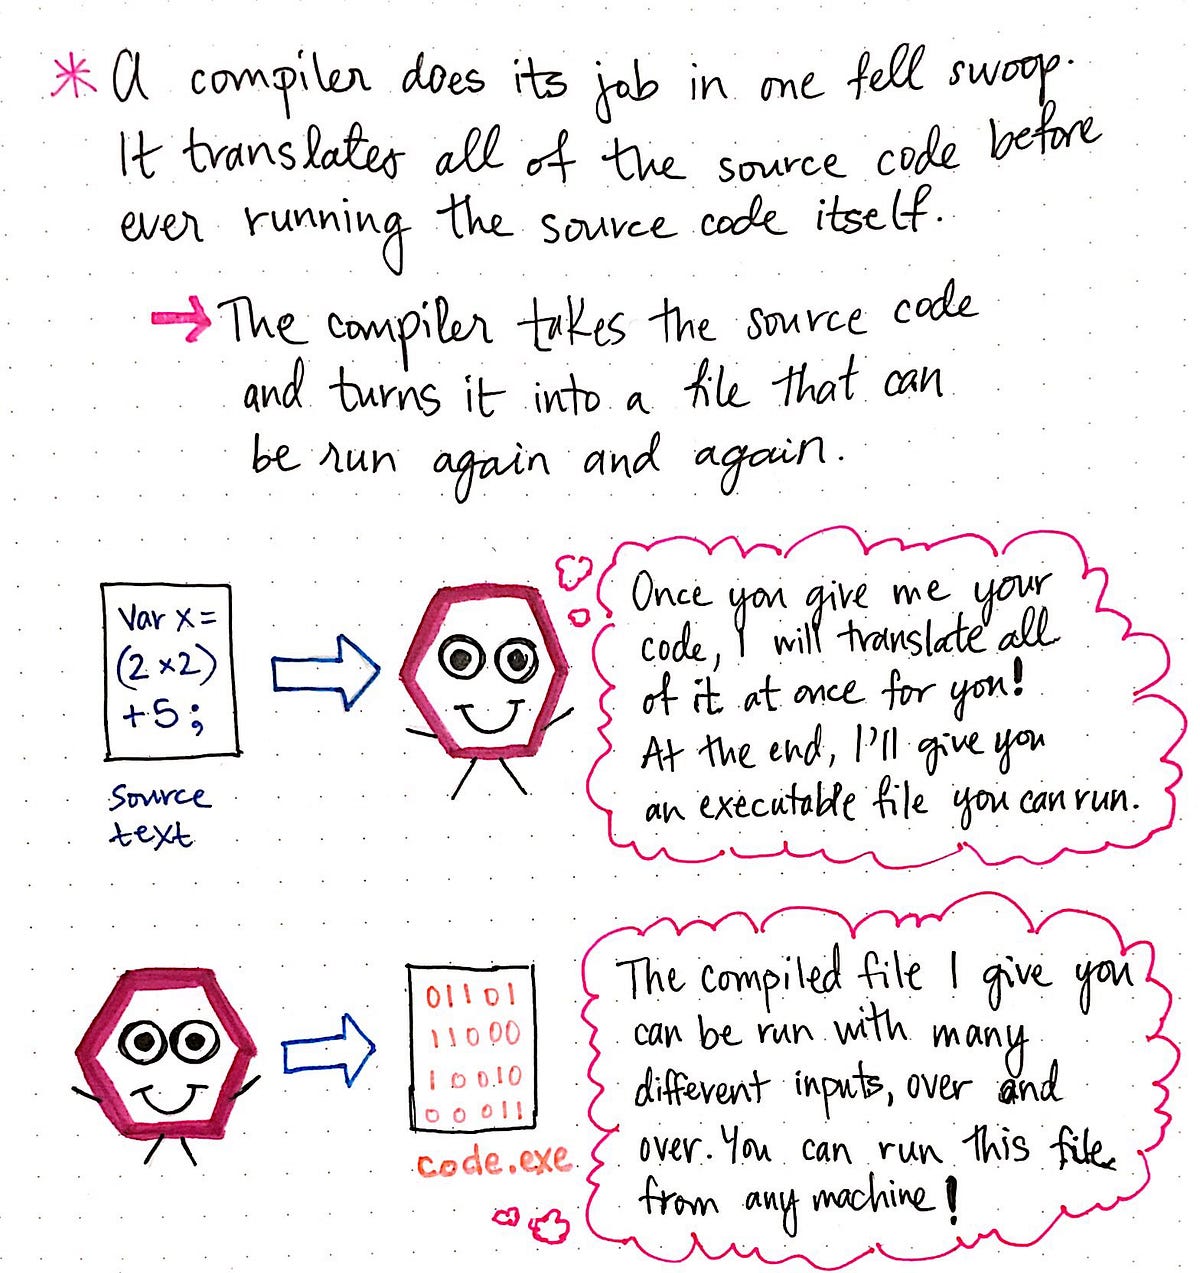 * A compiler does its job in one fell swoop.
It translates all of the source code before
ever running the source code itself.
→ The compiler takes the source code
and turns it into a file that can
be run again and again.
Var x =
(2 × 2)
+5;
Source
text
Once you give me your
code, I will translate all
of it at once for you!
At the end, I'll give you
an executable file you can run.
01101
11000
10010
00011
code.exe
The compiled file I give you
can be run with many
different inputs, over and
over. You can run this file
from any machine!